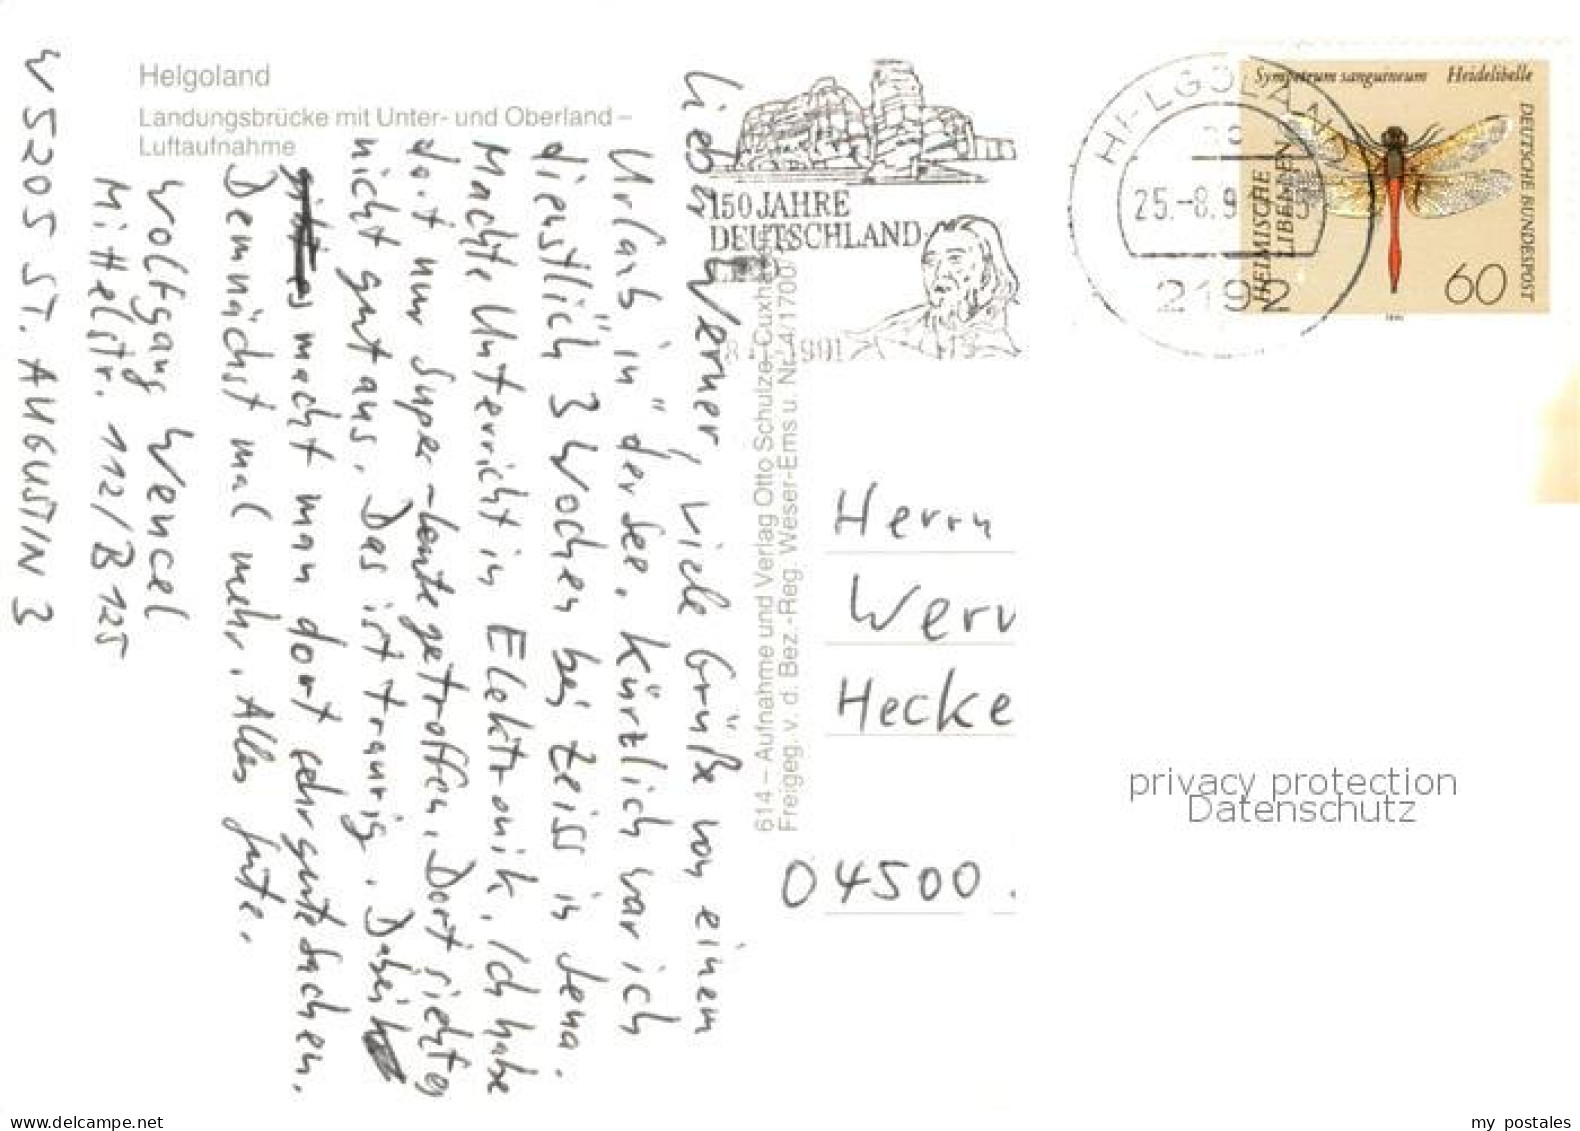 Helgoland
Landungsbrücke mit Unter- und Oberland –
Luftaufnahme
Lieber Werner, viele Grüße von einem
Urlaub in der See. Kürzlich war ich
dienstlich 3 Wochen bei Zeiss in Jena.
Machte Unterricht in Elektronik. Ich habe
dort nur Super-Leute getroffen. Dort sieht es
nicht gut aus. Das ist traurig. Dabei
macht man dort sehr gute Sachen.
Demnächst mal mehr. Alles Gute.
Wolfgang Wencel
Mittelstr. 112/B125
W 5205 ST. AUGUSTIN 3
614 – Aufnahme und Verlag Otto Schulze-Cuxhaven
Freigeg. v. d. Bez.-Reg. Weser-Ems u. Nr. 4/1700/
150 JAHRE
DEUTSCHLAND
1991
HELGOLAND
25.-8.9
2192
Sympetrum sanguineum Heidelibelle
HEIMISCHE
LIBELLEN
DEUTSCHE BUNDESPOST
60
Herrn
Wern
Hecke
04500
privacy protection
Datenschutz
www.delcampe.net
my postales